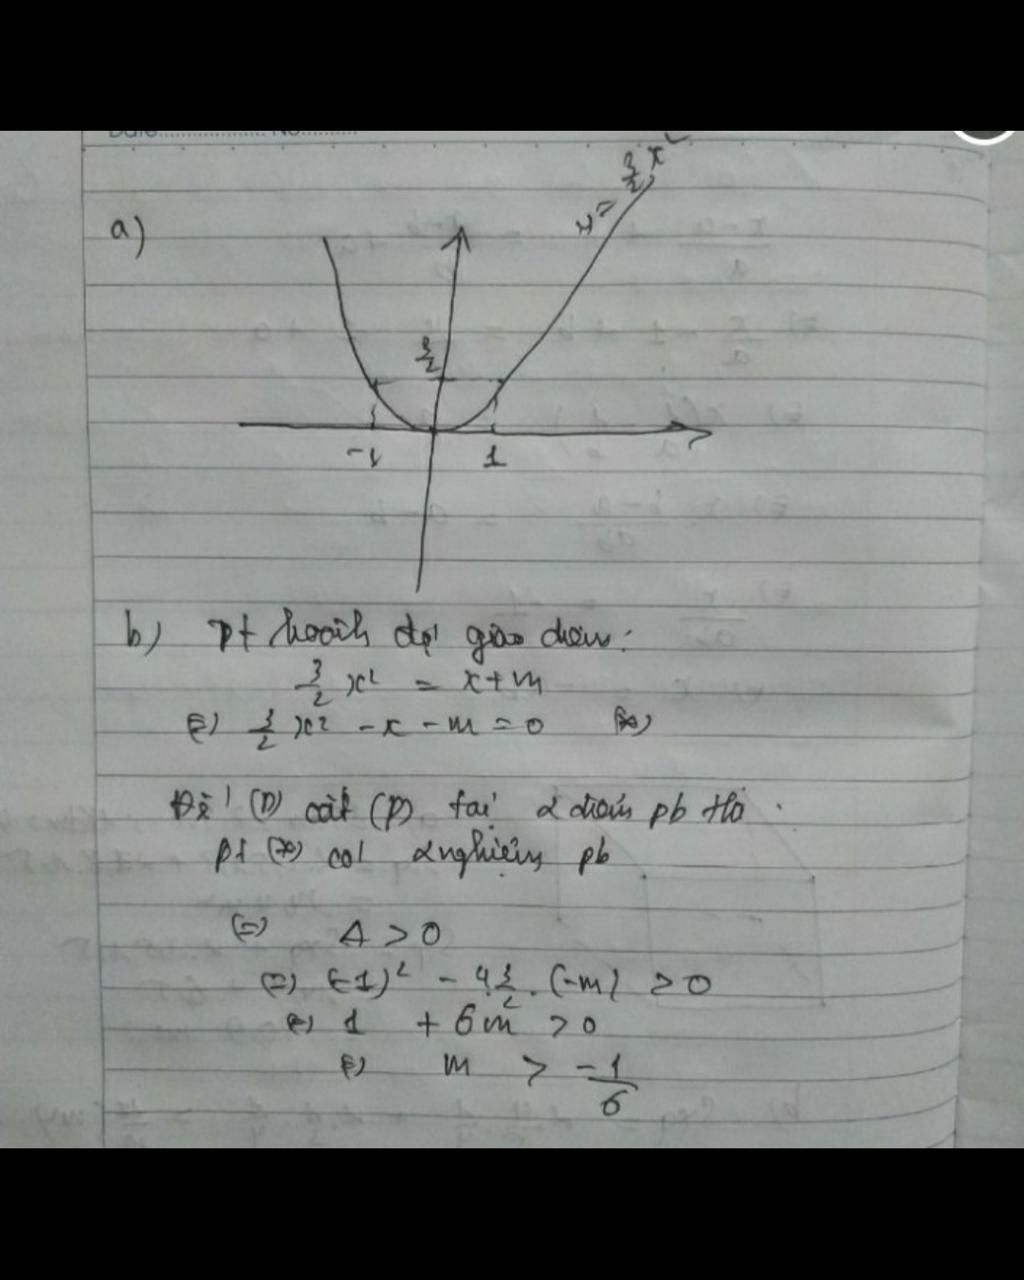 Date.................. No..........
a)
y = 3/2 x²
3/2
-1 1
b) Pt hoành độ giao điểm:
3/2 x² = x + m
(=) 3/2 x² - x - m = 0 (*)
Để (D) cắt (P) tại 2 điểm pb thì
pt (*) có 2 nghiệm pb
(=) Δ > 0
(=) (-1)² - 4.3/2.(-m) > 0
(=) 1 + 6m > 0
(=) m > -1/6